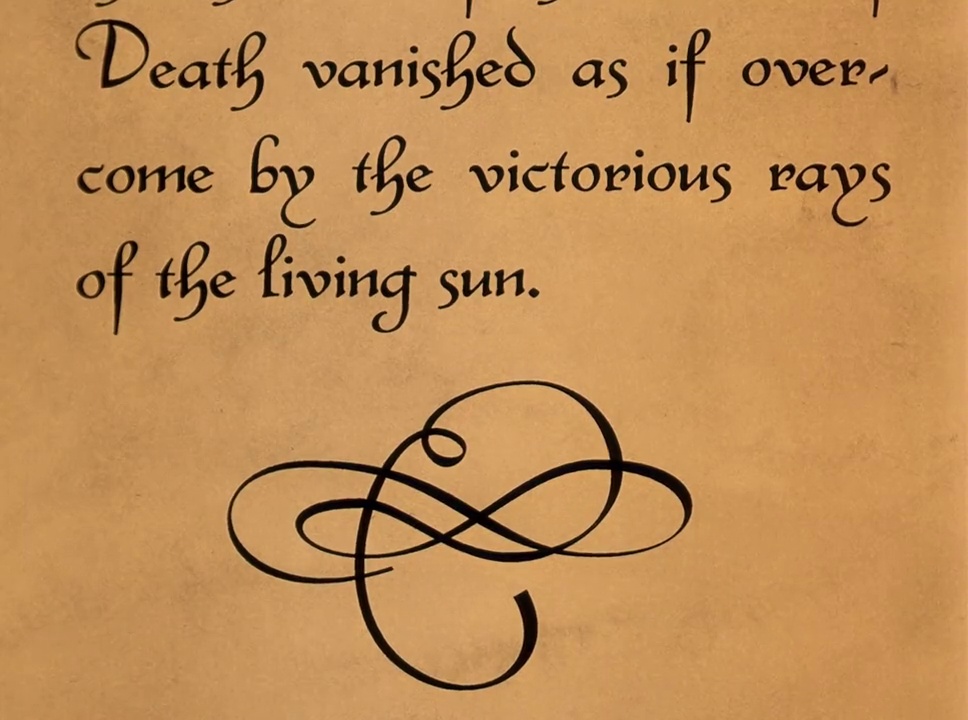 Death vanished as if over-
come by the victorious rays
of the living sun.